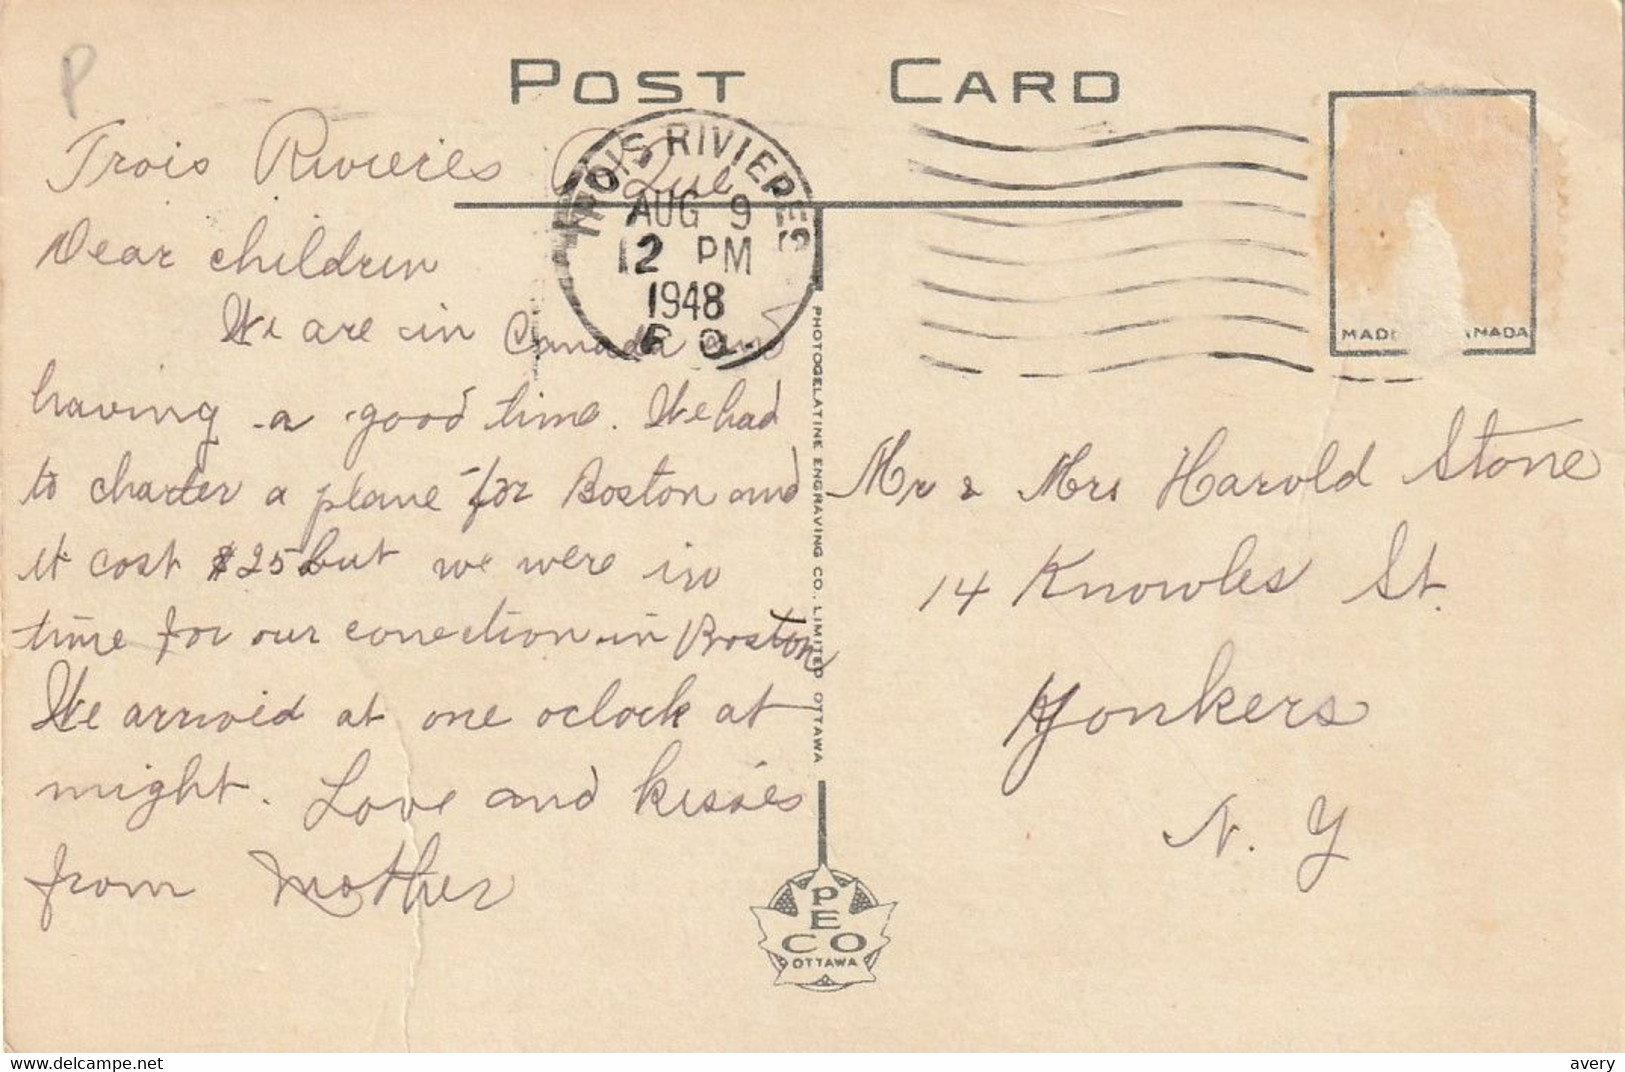 P
POST CARD
Trois Rivieres P Que
TROIS RIVIERES
AUG 9
12 PM
1948
P Q.
MADE CANADA
Dear children
We are in Canada and
having a good time. We had
to charter a plane for Boston and
it cost $25 but we were in
time for our conection in Boston
We arrived at one oclock at
night. Love and kisses
from Mother
PHOTOGELATINE ENGRAVING CO. LIMITED OTTAWA
Mr & Mrs Harold Stone
14 Knowles St.
Yonkers
N. Y
PECO
OTTAWA
delcampe.net
avery